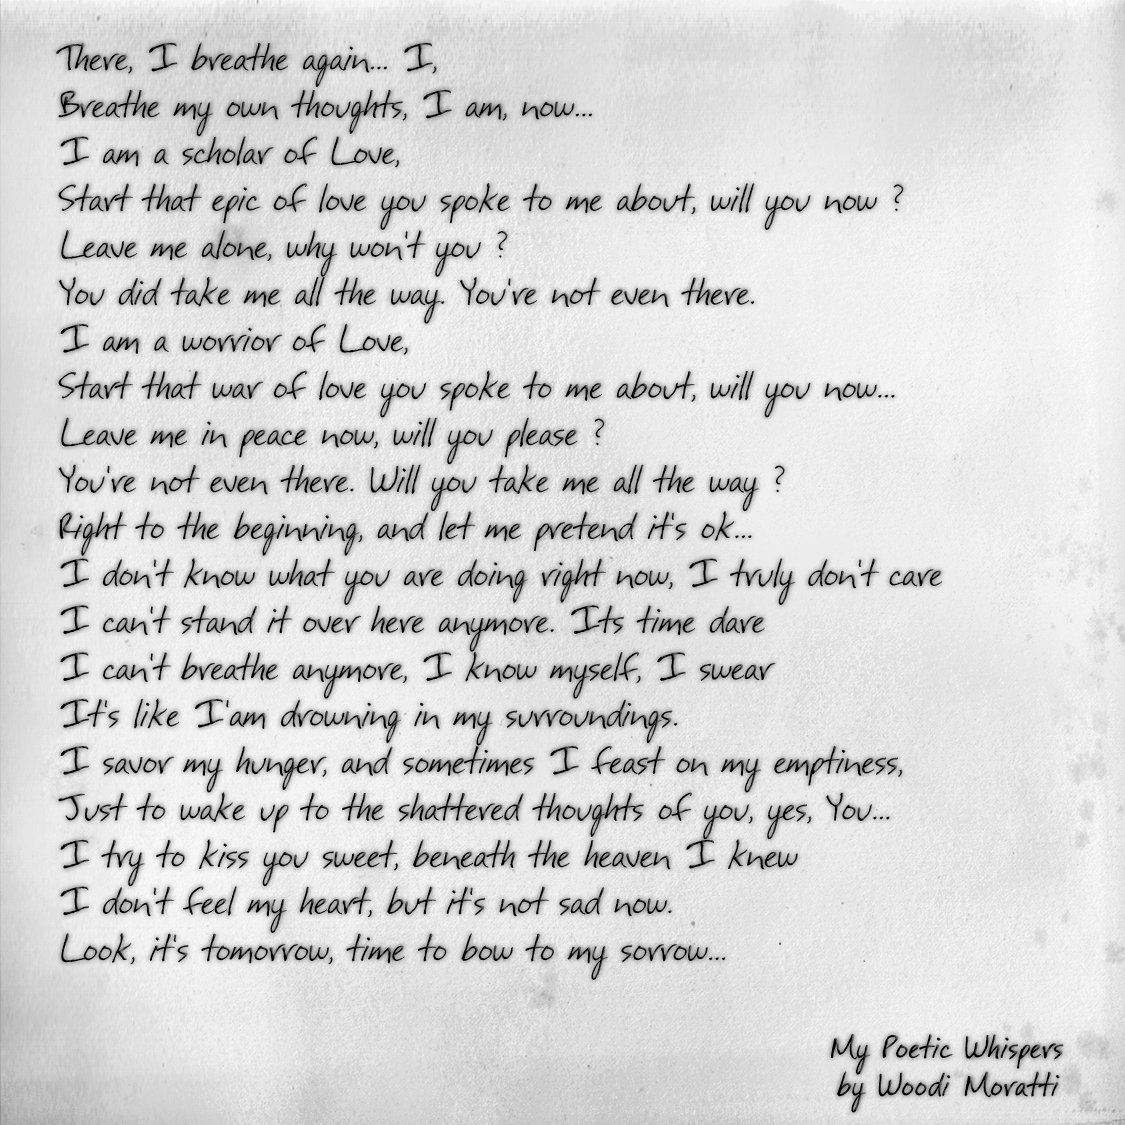 There, I breathe again... I,
Breathe my own thoughts, I am, now...
I am a scholar of Love,
Start that epic of love you spoke to me about, will you now ?
Leave me alone, why won't you ?
You did take me all the way. You're not even there.
I am a worrior of Love,
Start that war of love you spoke to me about, will you now...
Leave me in peace now, will you please ?
You're not even there. Will you take me all the way ?
Right to the beginning, and let me pretend it's ok...
I don't know what you are doing right now, I truly don't care
I can't stand it over here anymore. Its time dare
I can't breathe anymore, I know myself, I swear
It's like I'am drowning in my surroundings.
I savor my hunger, and sometimes I feast on my emptiness,
Just to wake up to the shattered thoughts of you, yes, You...
I try to kiss you sweet, beneath the heaven I knew
I don't feel my heart, but it's not sad now.
Look, it's tomorrow, time to bow to my sorrow...
My Poetic Whispers
by Woodi Moratti